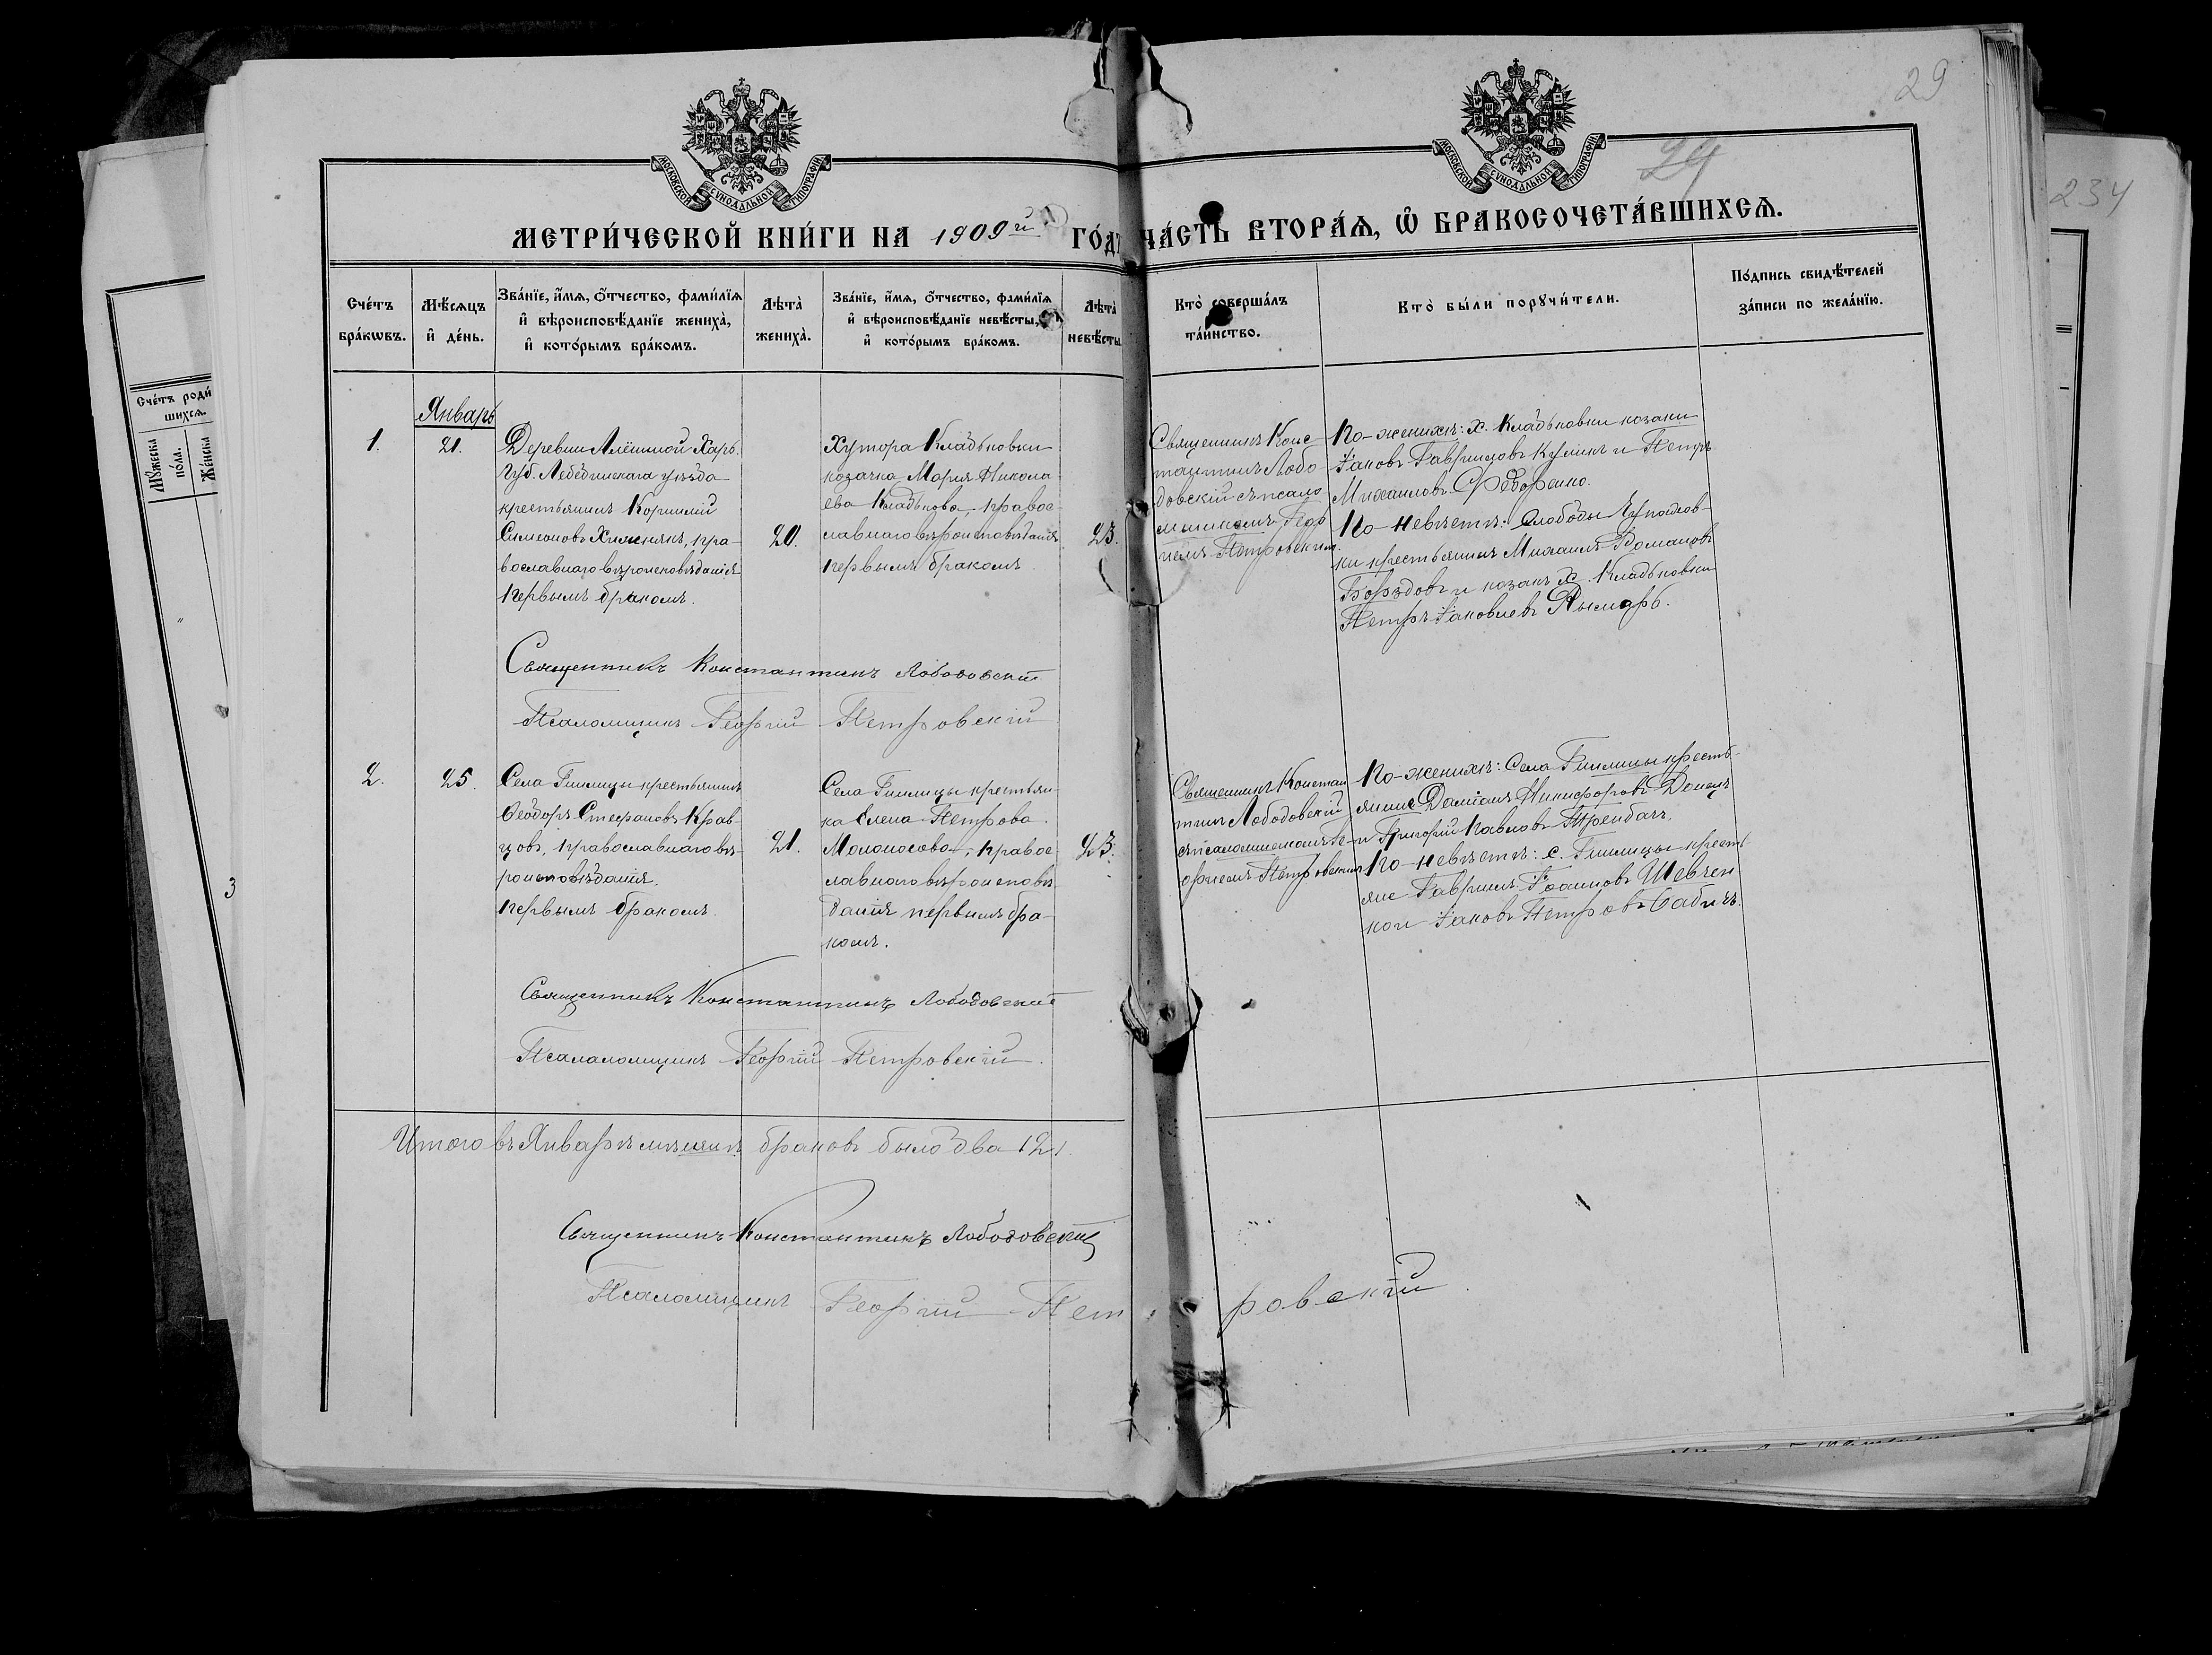 29
29
234
МОСКОВСКОЙ СѴНОДАЛЬНОЙ ТИПОГРАФІИ
МОСКОВСКОЙ СѴНОДАЛЬНОЙ ТИПОГРАФІИ
МЕТРИ́ЧЕСКОЙ КНИ́ГИ НА 1909й ГО́ДЪ ЧА́СТЬ ВТОРА́Ѧ, Ѽ БРАКОСОЧЕТА́ВШИХСѦ.
Сче́тъ бра́кѡвъ.
Мѣ́сѧцъ и҆ де́нь.
Зва́нїе, и҆́мѧ, ѻ҆́тчество, фами́лїѧ
и҆ вѣроисповѣ́данїе жениха̀,
и҆ кото́рымъ бра́комъ.
Лѣта̀ жениха̀.
Зва́нїе, и҆́мѧ, ѻ҆́тчество, фами́лїѧ
и҆ вѣроисповѣ́данїе невѣ́сты,
и҆ кото́рымъ бра́комъ.
Лѣта̀ невѣ́сты
Кто̀ соверша́лъ
та́инство.
Кто̀ бы́ли порꙋчи́тели.
По́дпись свидѣ́телей
за́писи по жела́нїю.
Сче́тъ роди́
шихсѧ.
Мꙋ́жеска
по́ла.
Же́нска
3
Январь
1.
21.
Деревни Алёшиной Харь.
Губ. Лебединскаго уѣзда
крестьянинъ Корнилій
Симеоновъ Хижнякъ, пра-
вославнаго вѣроисповѣданія
первымъ бракомъ.
20.
Хутора Кладьковки
козачка Марія Никола
ева Кладькова, правос
лавнаго вѣроисповѣданія
первымъ бракомъ
23.
Священникъ Конс
тантинъ Лобо
довскій съ псало
мщикомъ Геор
гіемъ Петровскимъ.
По-женихѣ: х. Кладьковки козаки
Іаковъ Гавриловъ Куликъ и Петръ
Михаиловъ Федоренко.
По-невѣстѣ: слободы
ки крестьянинъ Михаилъ Романовъ
и козакъ х. Кладьковки
Петръ Іаковлевъ Рымарь.
Священникъ Константинъ Лободовскій
Псаломщикъ Георгій Петровскій
2.
25.
Села Гиилицы крестьянинъ
Ѳеодоръ Стефановъ Крав
цовъ, православнаго вѣ-
роисповѣданія.
первымъ бракомъ.
21.
Села Гиилицы крестьян
ка Елена Петрова
Молоносова, правос
лавнаго вѣроисповѣ
данія первымъ бра
комъ.
23.
Священникъ Констан
тинъ Лободовскій
съ псаломщикомъ Ге
оргіемъ Петровскимъ
По-женихѣ: Села Гиилицы кресть-
яние Даміанъ Никифоровъ Донецъ
и Григорій Павловъ Требачъ.
По-невѣстѣ: с. Гиилицы кресть
яне Гавріилъ Іоанновъ Шевчен
ко и Іаковъ Петровъ Бабичъ.
Священникъ Константинъ Лободовскій
Псалаломщикъ Георгій Петровскій.
Итого въ Январѣ мѣсяцѣ браковъ было два /2/.
Священникъ Константинъ Лободовскій
Псаломщикъ Георгій Петровскій